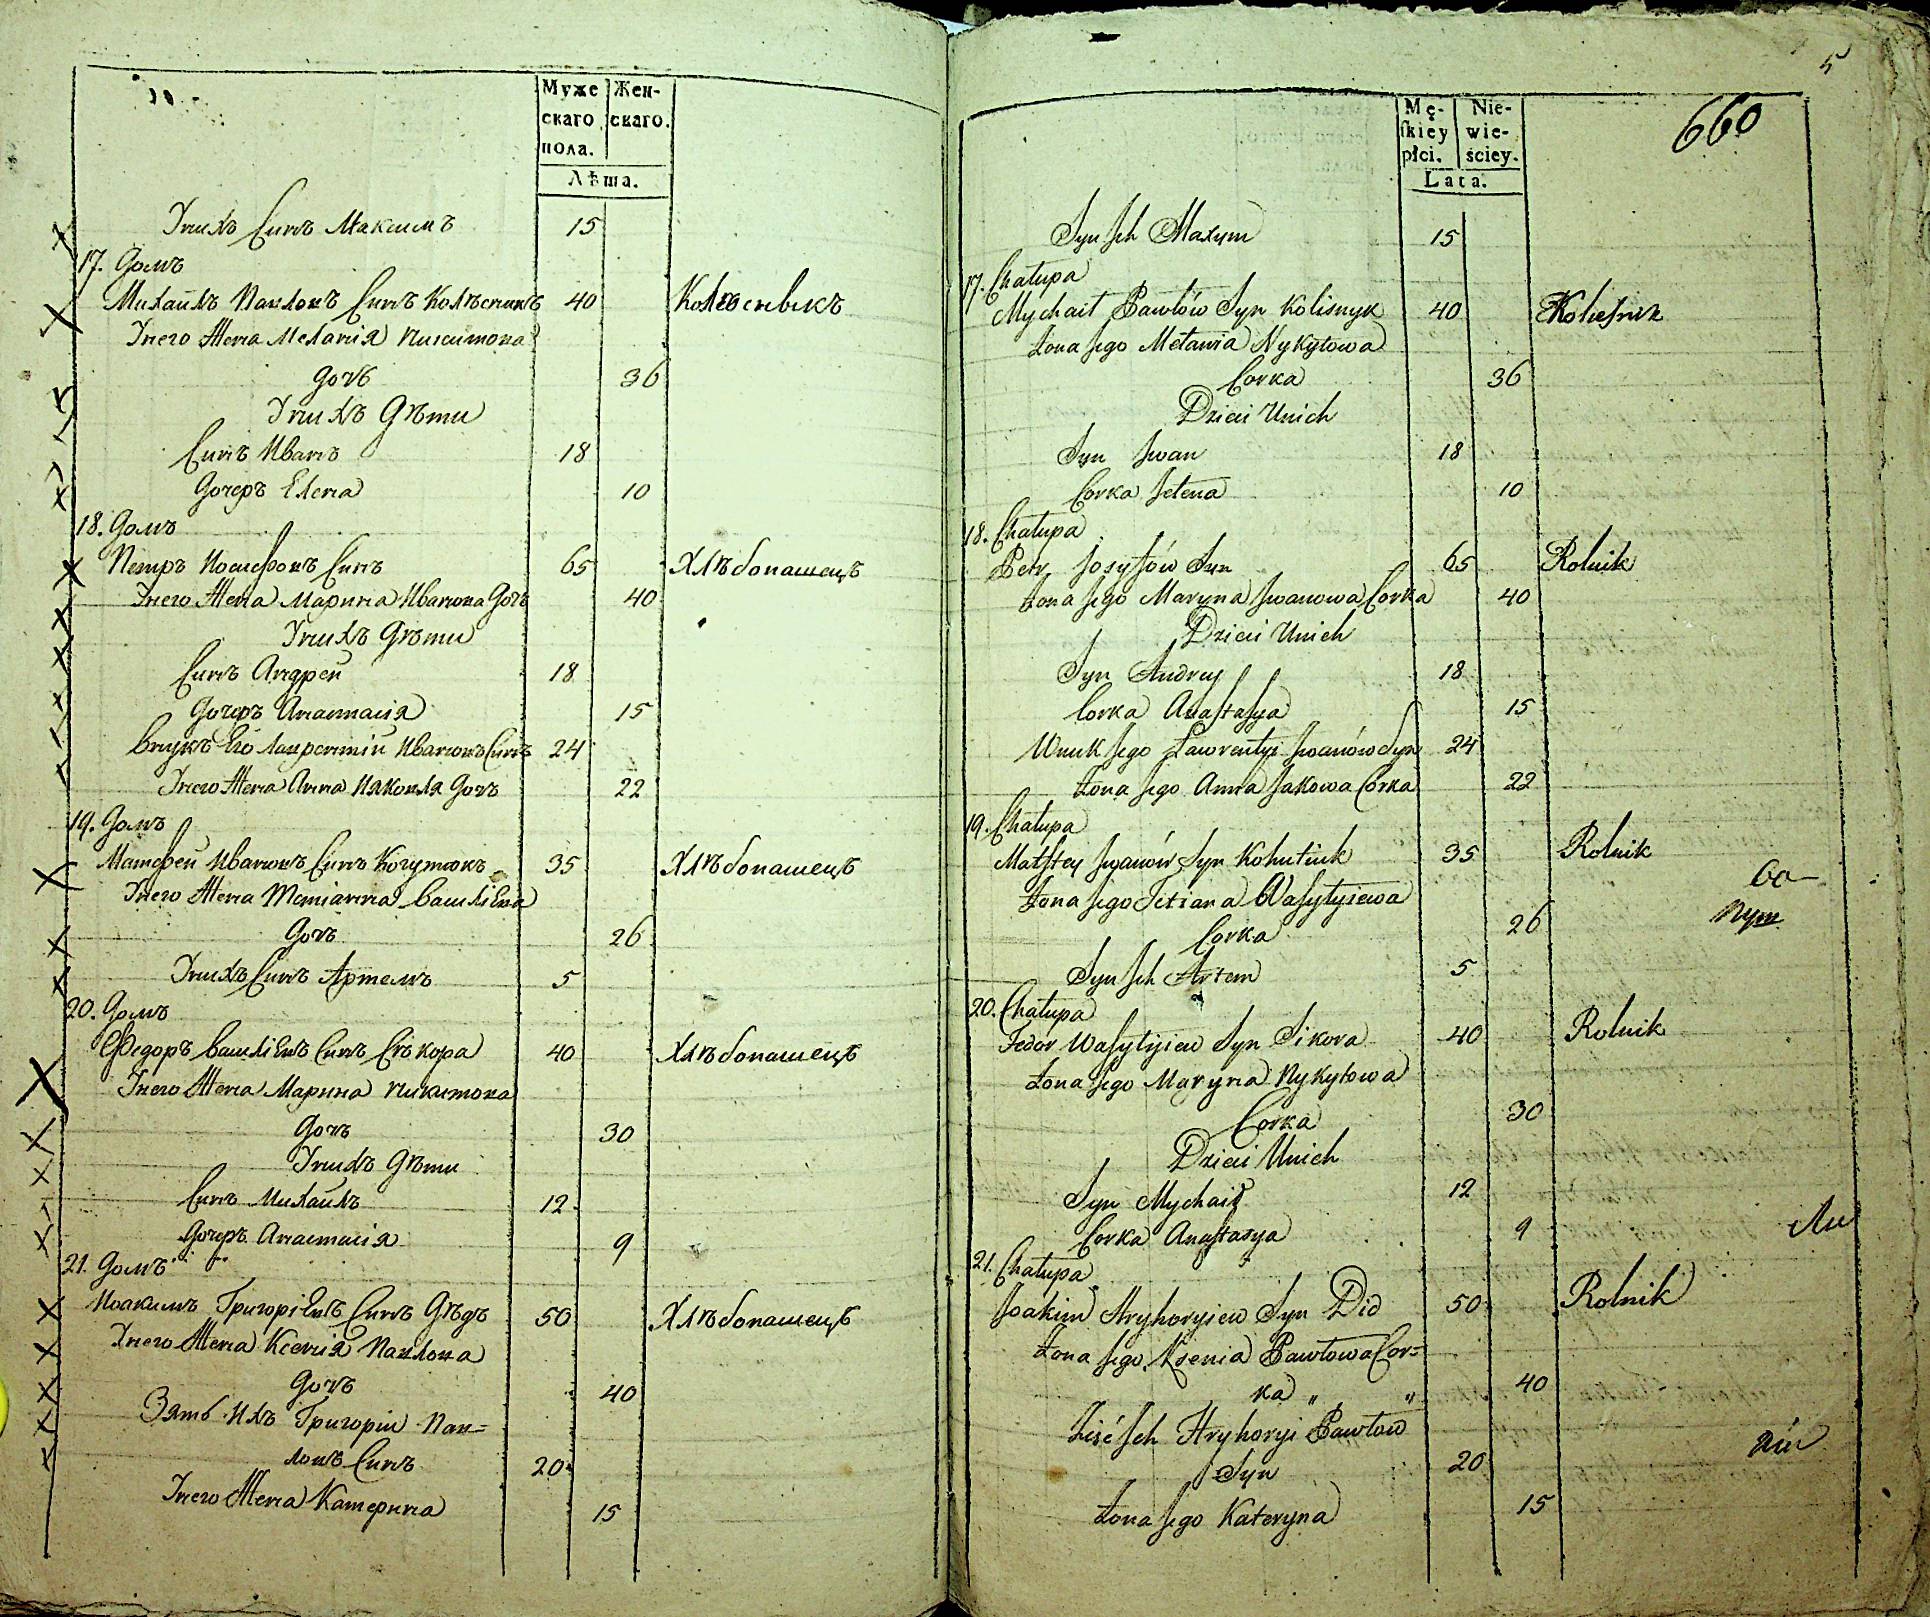 Муже
скаго
пола.
Жен-
скаго.
Лѣта.
Унихъ Синъ Максимъ 15
17. Домъ
Михаилъ Павловъ Синъ Колѣсникъ 40 Колесныкъ
Унего Жена Меланія Никитова
Дочъ 36
Унихъ Дѣти
Синъ Иванъ 18
Дочеръ Елена 10
18. Домъ
Петръ Иосифовъ Синъ 65 Хлѣбопашецъ
Унего Жена Марина Иванова Дочъ 40
Унихъ Дѣти
Синъ Андрей 18
Дочеръ Анастасія 15
Внукъ Его Лаврентій Ивановъ Синъ 24
Унего Жена Анна Иаковля Дочъ 22
19. Домъ
Матфей Ивановъ Синъ Когутюкъ 35 Хлѣбопашецъ
Унего Жена Татіанна Василіева
Дочъ 26
Унихъ Синъ Артемъ 5
20. Домъ
Федоръ Василіевъ Синъ Сѣкора 40 Хлѣбопашецъ
Унего Жена Марина Никитова
Дочъ 30
Унихъ Дѣти
Синъ Михаилъ 12
Дочеръ Анастасія 9
21. Домъ
Иоакимъ Григоріевъ Синъ Дѣдъ 50 Хлѣбопашецъ
Унего Жена Ксенія Павлова
Дочъ 40
Зять Ихъ Григорій Пав=
ловъ Синъ 20
Унего Жена Катерина 15
5
660
Mę-
skiey
płci.
Nie-
wie-
ściey.
Lata.
Syn Jch Maxym 15
17. Chałupa
Mychaił Pawłów Syn Kolisnyk 40
Żona Jego Mełania Nykytowa
Corka 36
Dzieci Unich
Syn Jwan 18
Corka Jełena 10
18. Chałupa
Petr Josyfów Syn 65 Rolnik
Żona Jego Maryna Jwanowa Corka 40
Dzieci Unich
Syn Andrey 18
Corka Anastasya 15
Wnuk Jego Ławrentyi Jwanów Syn 24
Żona Jego Anna Jakowa Corka 22
19. Chałupa
Matftey Jwanów Syn Kohutiuk 35 Rolnik
Żona Jego Tetiana Wasylyiewa
Corka 26
Syn Jch Artem 5
20. Chałupa
Fedor Wasylyiew Syn Sikora 40 Rolnik
Żona Jego Maryna Nykytowa
Corka 30
Dzieci Unich
Syn Mychaił 12
Corka Anastasya 9
21. Chałupa
Joakim Hryhoryiew Syn Did 50 Rolnik
Żona Jego Ksenia Pawłowa Cor=
ka „ „ 40
Zięć Jch Hryhoryi Pawłow
Syn 20
Żona Jego Kateryna 15